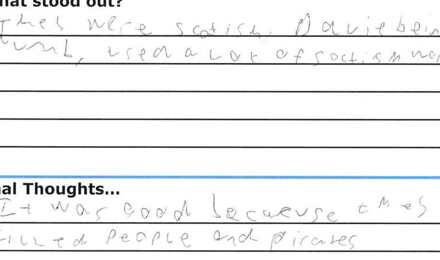 hat stood out?
They were scotish. Davie bein
used a lot of scotish wor
al Thoughts...
It was good because they
killed people and pirates